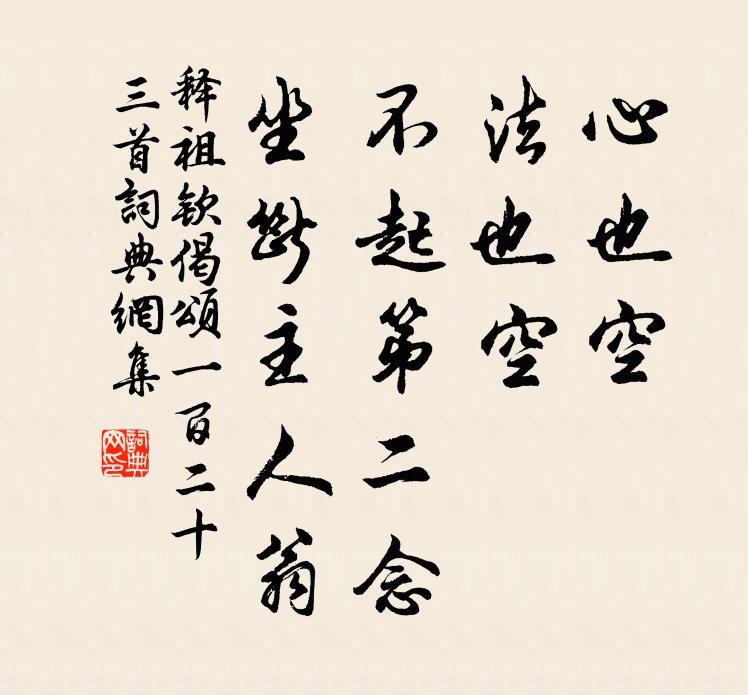 心也空
法也空
不起第二念
坐断主人翁
释祖钦偈頌一百二十
三首詞典網集
詞典
网印